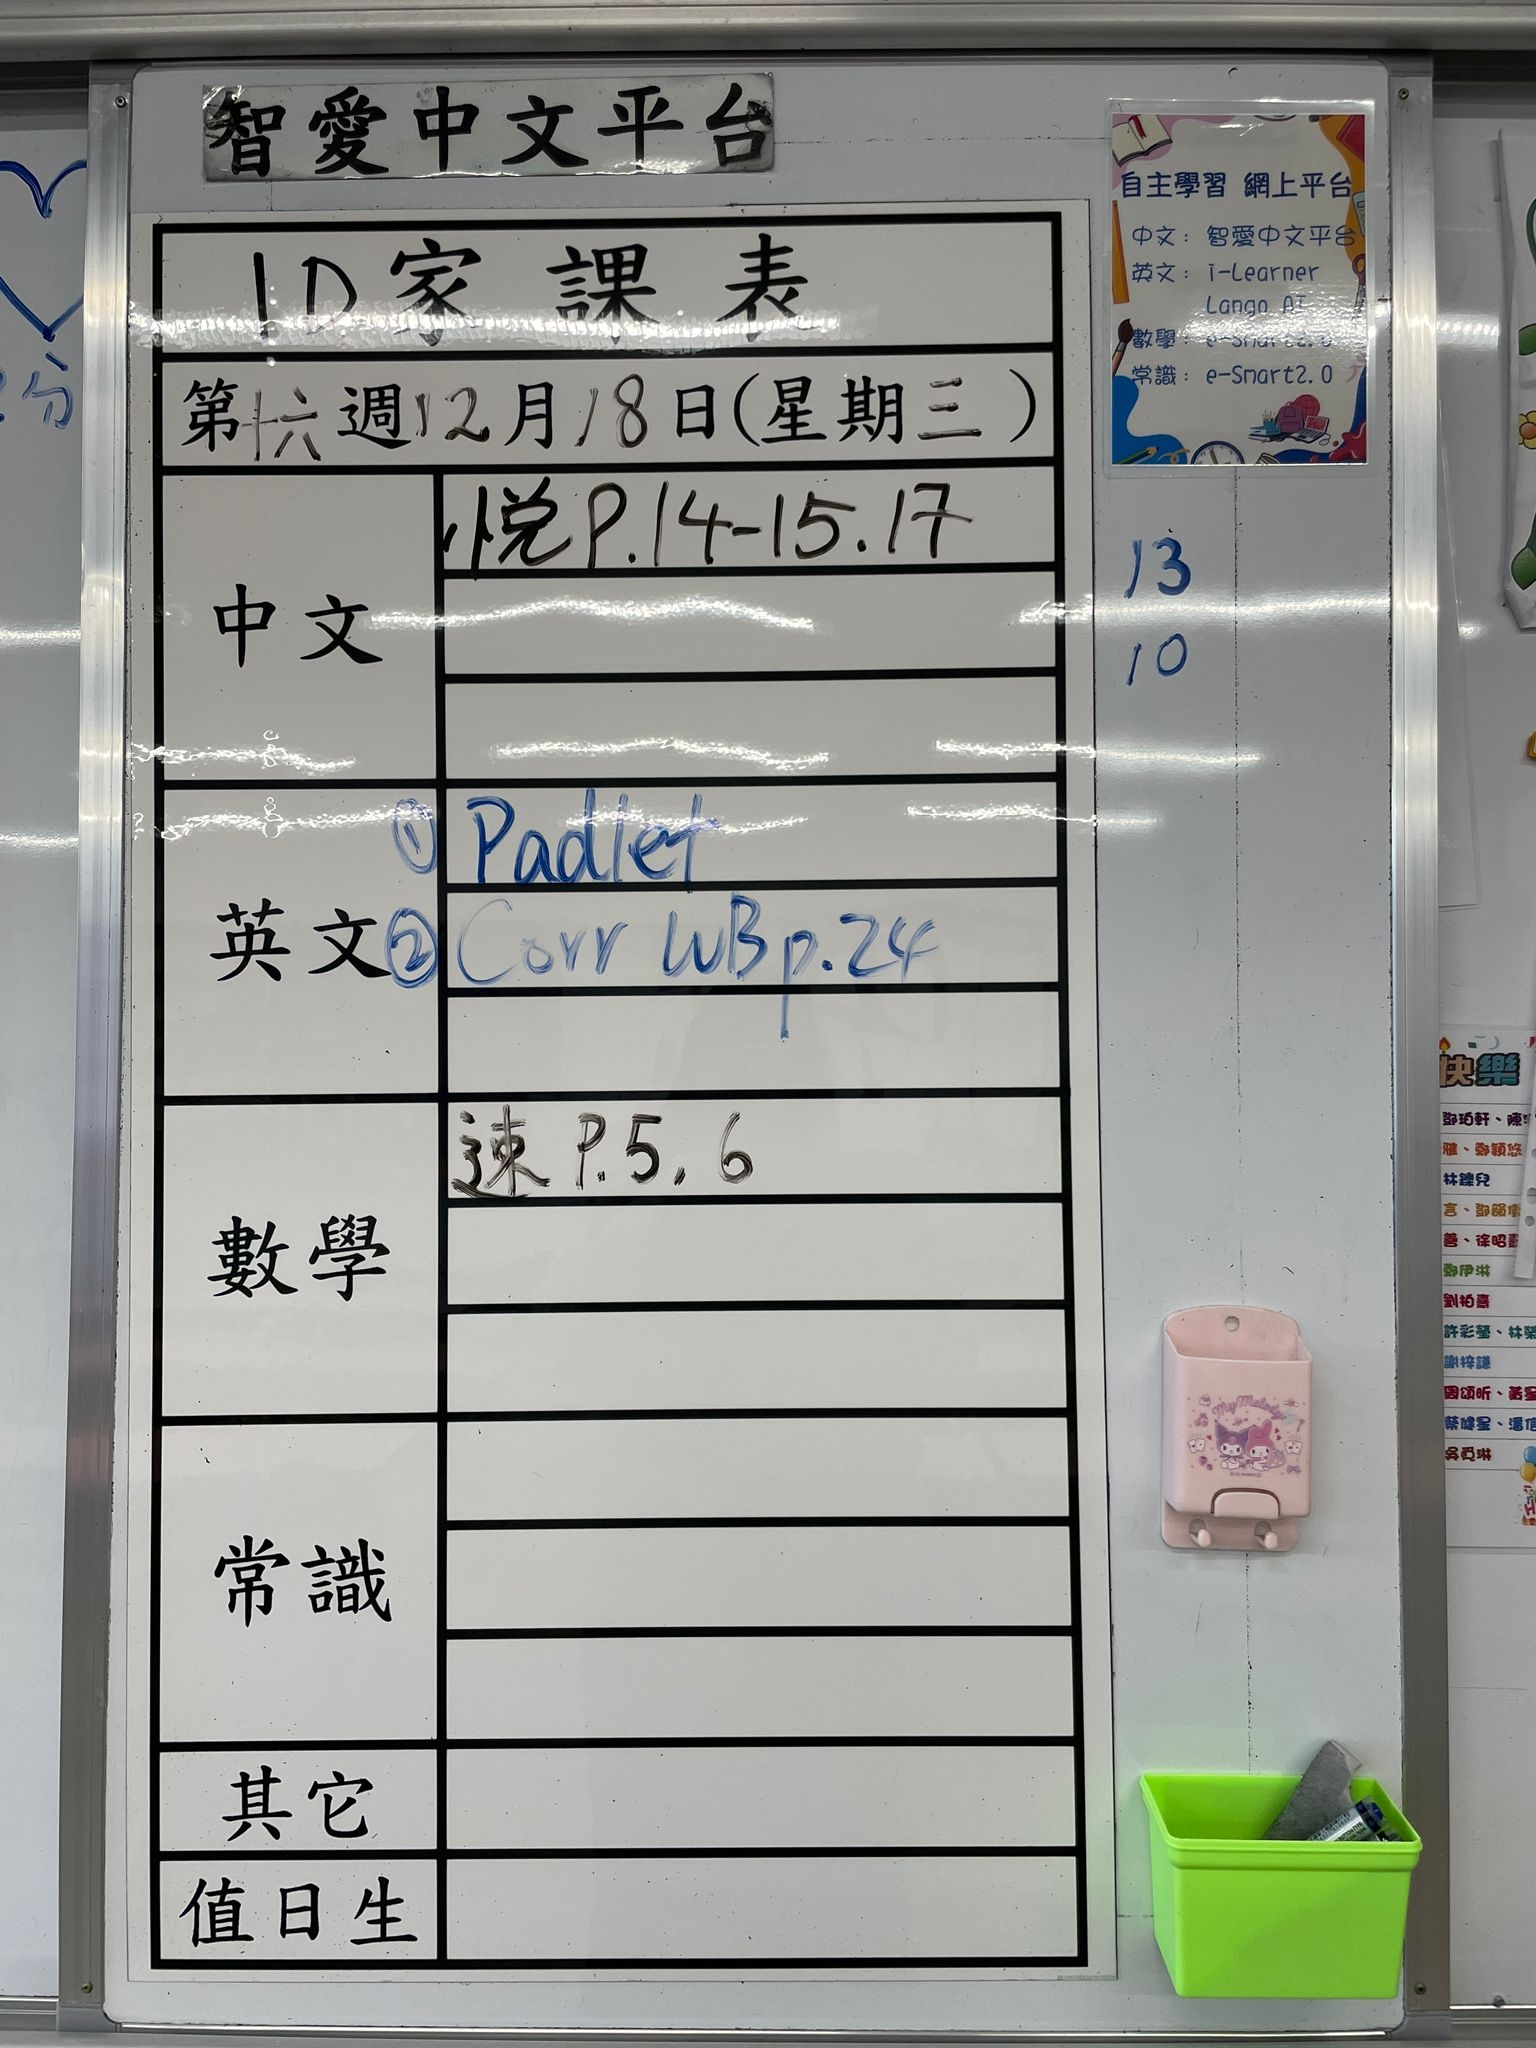 智愛中文平台
1D家課表
第十六週12月18日(星期三)
中文
悦P.14-15.17
英文
① Padlet
② Corr WB p.24
數學
速 P.5, 6
常識
其它
值日生
自主學習 網上平台
中文：智愛中文平台
英文：i-Learner
Lango AI
數學：e-Smart2.0
常識：e-Smart2.0
13
10
分
My Melody
快樂
鄧珀軒、陳
雅、鄭穎悠
林鏵兒
言、鄧韻
善、徐昭
鄭伊淋
劉柏熹
許彩瑩、林
謝梓謙
周頌昕、黃
蔡健星、潘信
吳覓琳